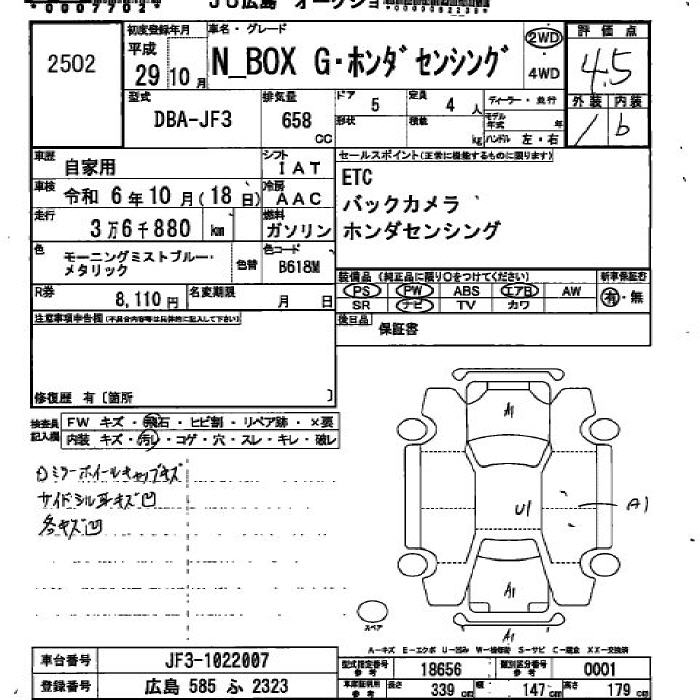 00077024 JU広島 オークショ
2502
初度登録年月
平成
29年10月
車名・グレード
N_BOX G・ホンダセンシング
2WD
4WD
評価点
4.5
外装 内装
b
型式
DBA-JF3
排気量
658 CC
ドア 5
定員 4人
形状
積載 kg
ディーラー・並行
モデル年式 年
ハンドル 左・右
車歴 自家用
シフト IAT
車検 令和 6年10月(18日)
冷房 AAC
走行 3万6千880 km
燃料 ガソリン
セールスポイント(正常に機能するものに限ります)
ETC
バックカメラ
ホンダセンシング
色 モーニングミストブルー・メタリック
色替
色コード B618M
装備品 (純正品に限り○をつけてください)
新車保証書
PS PW ABS エアB AW
SR ナビ TV カワ
有・無
R券 8,110円
名変期限 月 日
後日品 保証書
注意事項申告欄(不具合内容等は具体的に記入して下さい)
修復歴 有〔箇所 〕
検査員記入欄
FW キズ・飛石・ヒビ割・リペア跡・×要
内装 キズ・汚レ・コゲ・穴・スレ・キレ・破レ
ミラーホイールキャップキズ
サイドシル耳キズ凹
各キズ凹
A1
U1
A1
A1
A1
スペア
A-キズ E-エクボ U-凹み W-補修跡 S-サビ C-腐食 XX-交換済
車台番号 JF3-1022007
登録番号 広島 585 ふ 2323
型式指定番号 参考 18656
類別区分番号 参考 0001
車庫証明用 参考 長さ 339 cm 幅 147 cm 高さ 179 cm